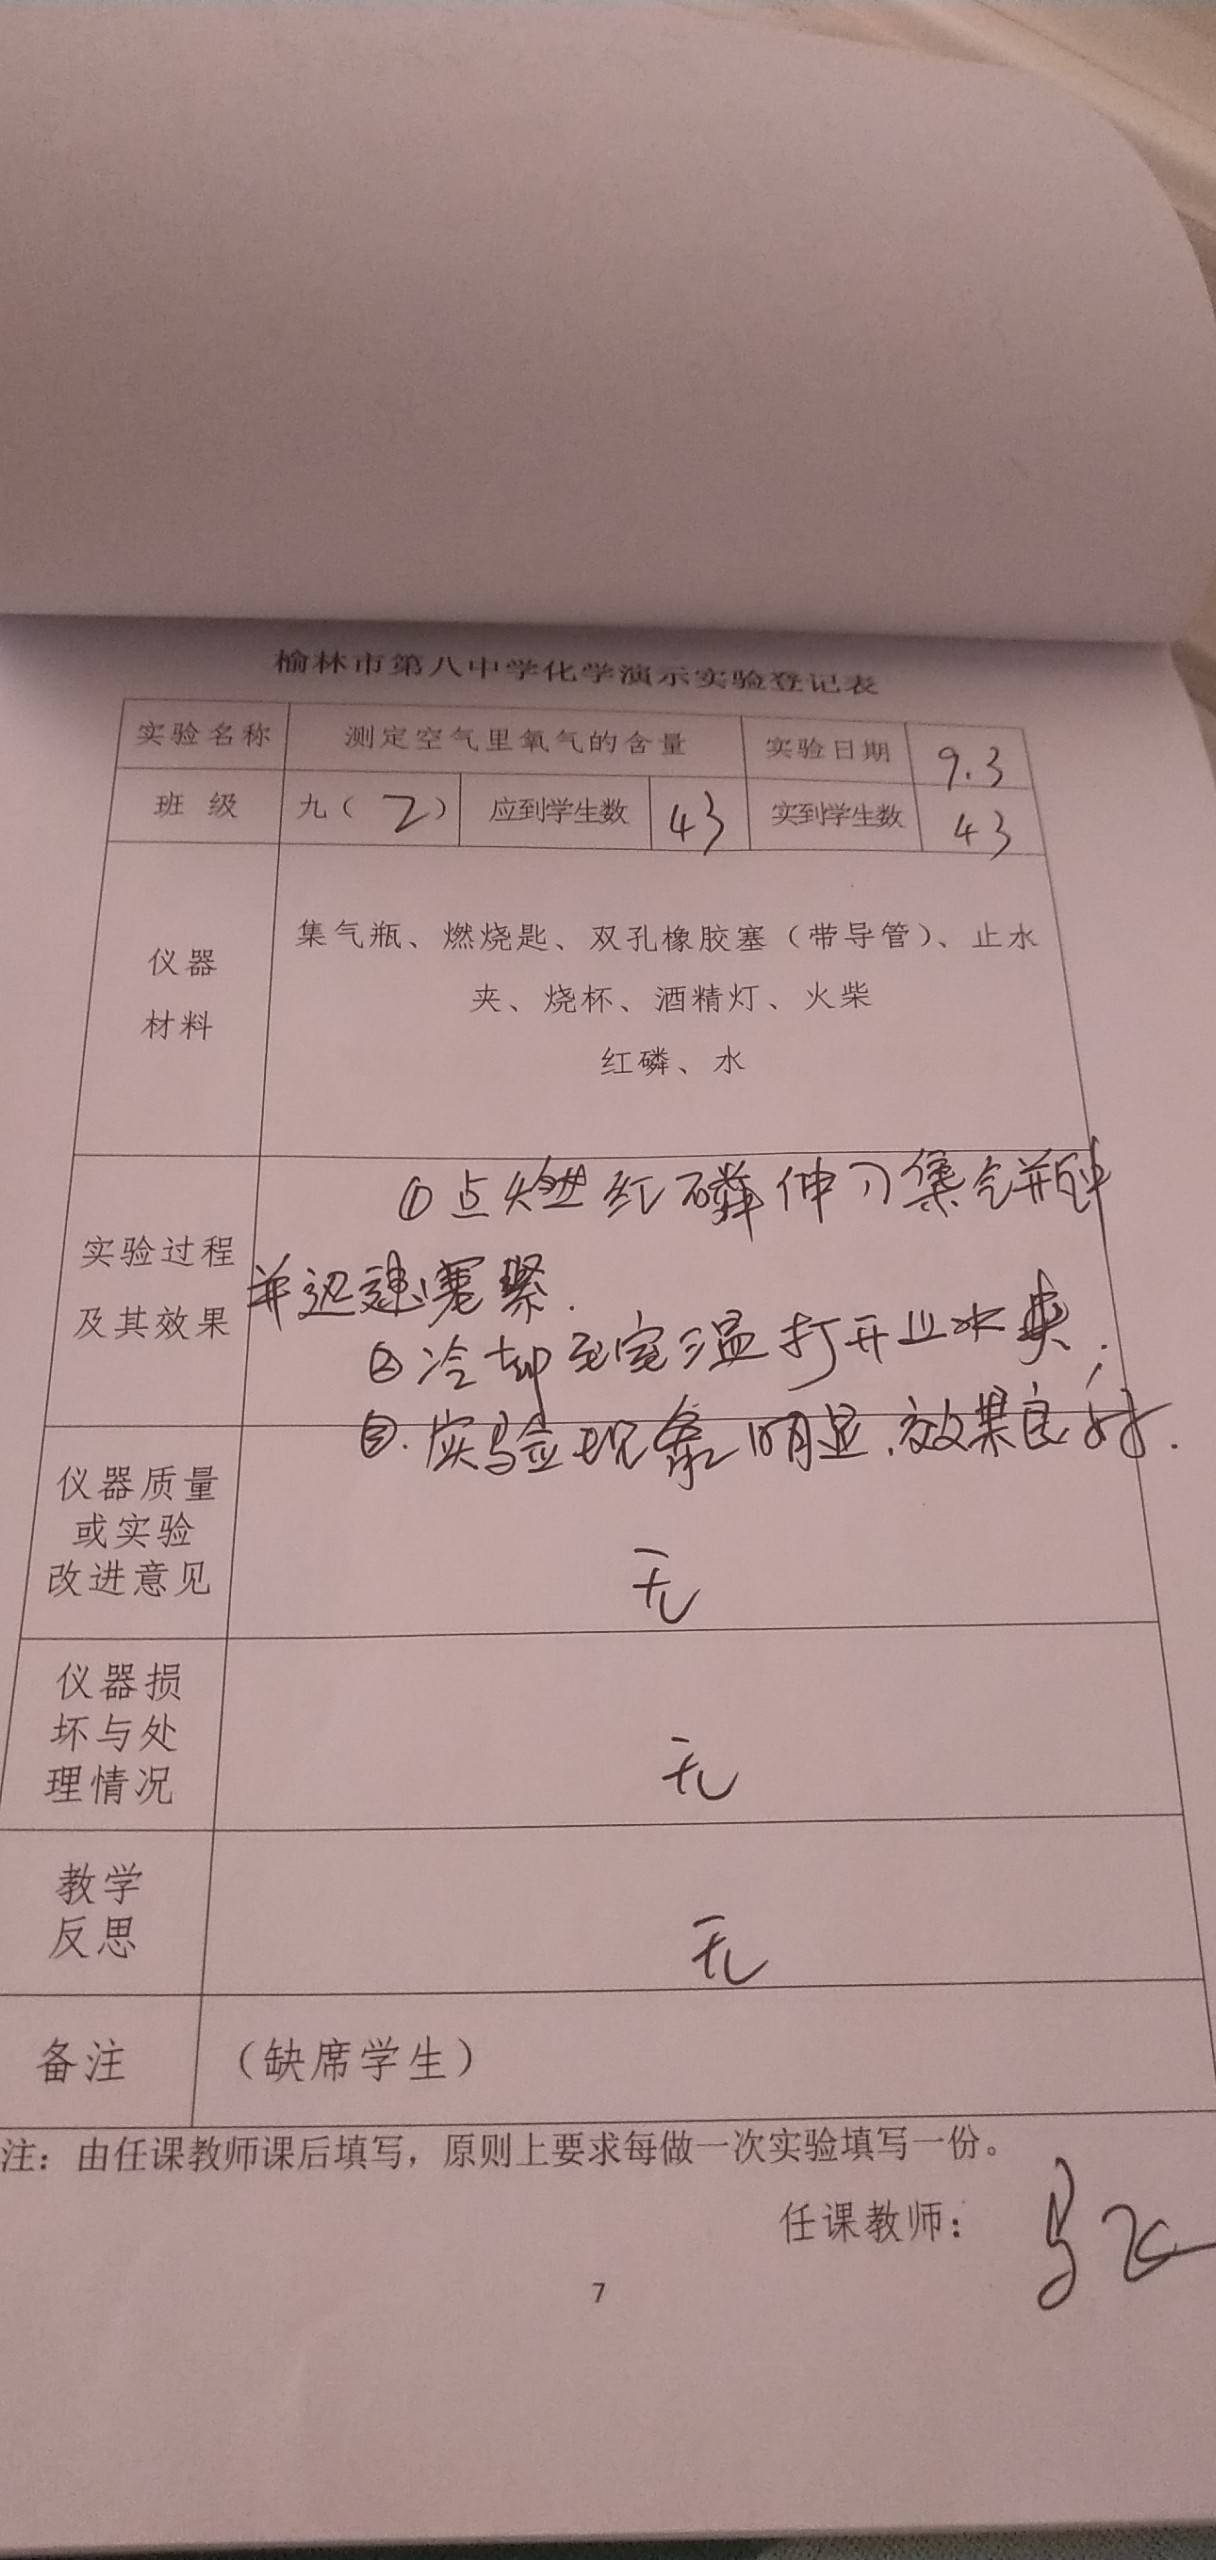 榆林市第八中学化学演示实验登记表
实验名称 测定空气里氧气的含量 实验日期 9.3
班 级 九（2） 应到学生数 43 实到学生数 43
仪器
材料
集气瓶、燃烧匙、双孔橡胶塞（带导管）、止水
夹、烧杯、酒精灯、火柴
红磷、水
实验过程
及其效果
①点燃红磷伸入集气瓶中
并迅速塞紧.
②冷却至室温打开止水夹;
③.实验现象明显、效果良好.
仪器质量
或实验
改进意见
无
仪器损
坏与处
理情况
无
教学
反思
无
备注 （缺席学生）
注：由任课教师课后填写，原则上要求每做一次实验填写一份。
任课教师：
7